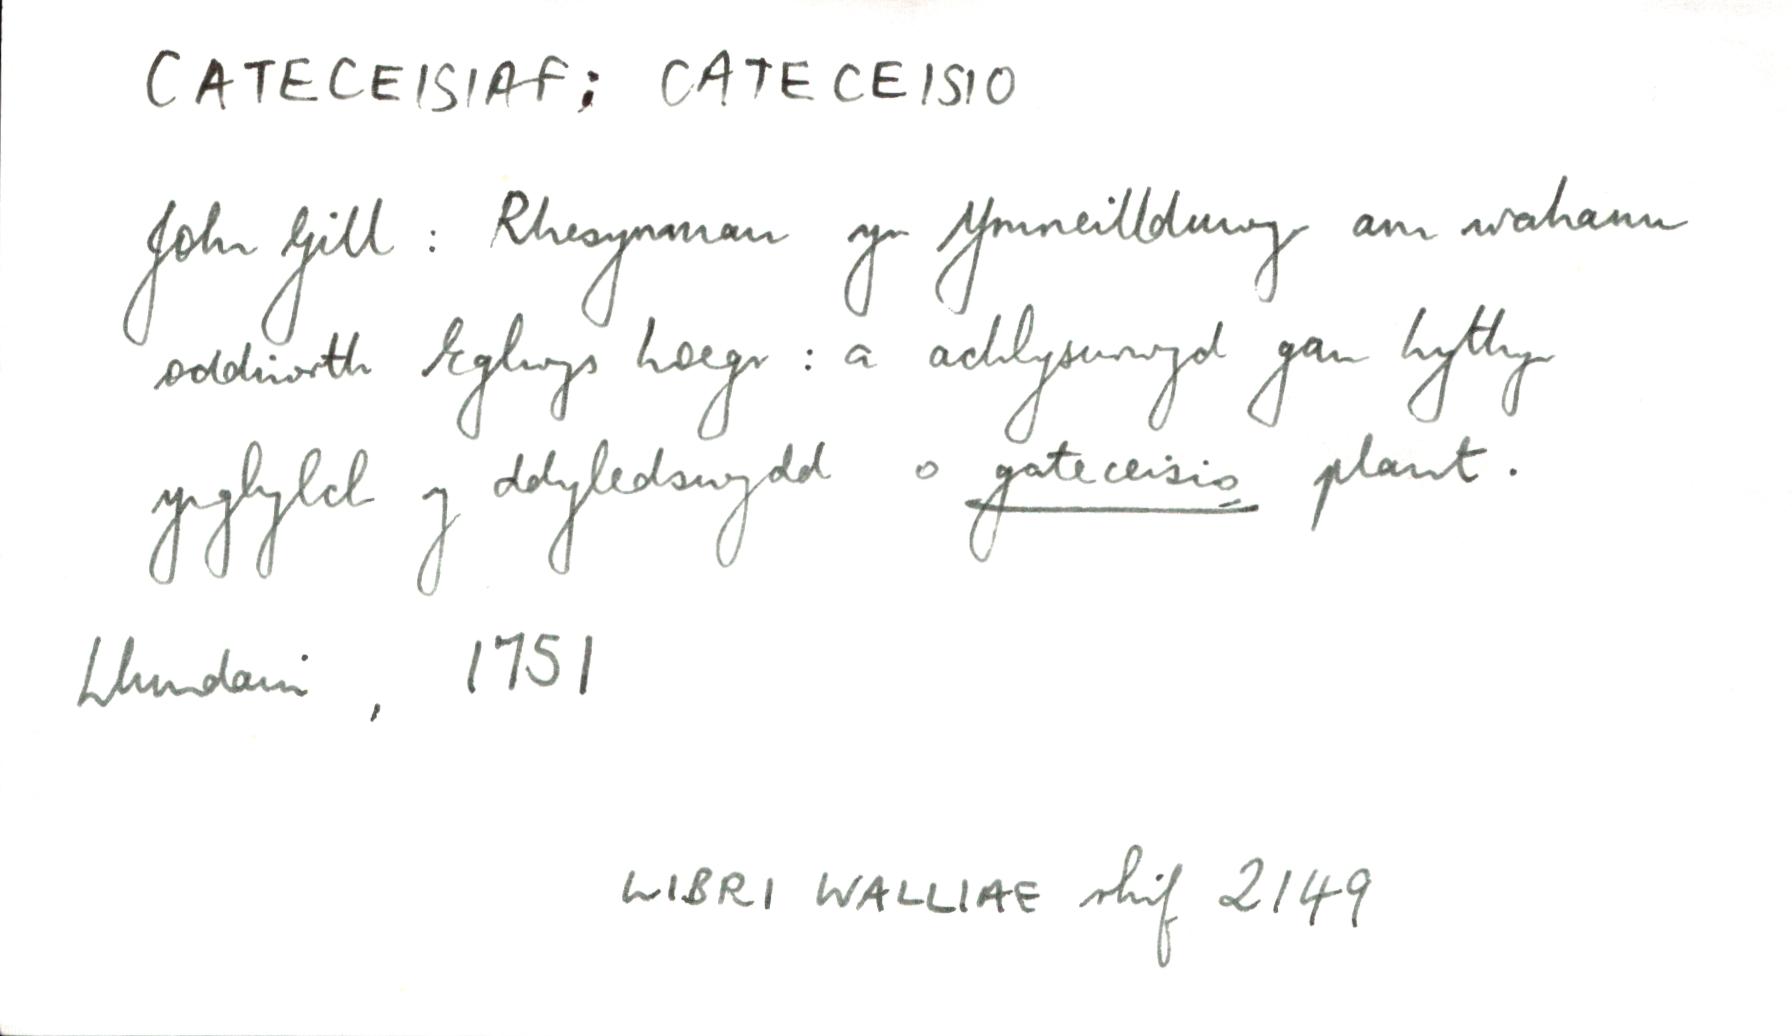 CATECEISIAF; CATECEISIO
John Gill : Rhesymmau yr Ymneillduwyr am wahanu
oddiwrth Eglwys Loegr : a achlysurwyd gan Lythyr
ynghylch y ddyledswydd o gateceisio plant.
Llundain, 1751
LIBRI WALLIAE rhif 2149